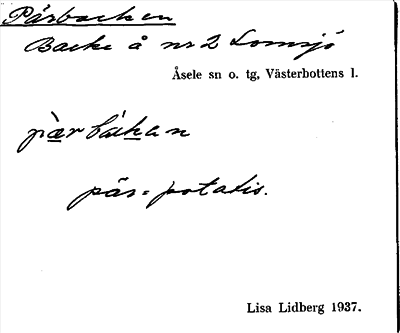 Pärbacken
Backe å nr 2 Lomsjö
Åsele sn o. tg, Västerbottens l.
pàrbákan
pär = potatis.
Lisa Lidberg 1937.